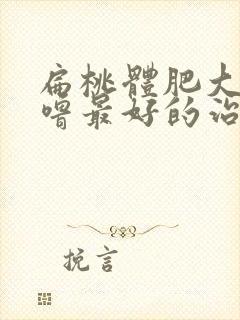 扁桃體肥大
嘈最好的治
挽言